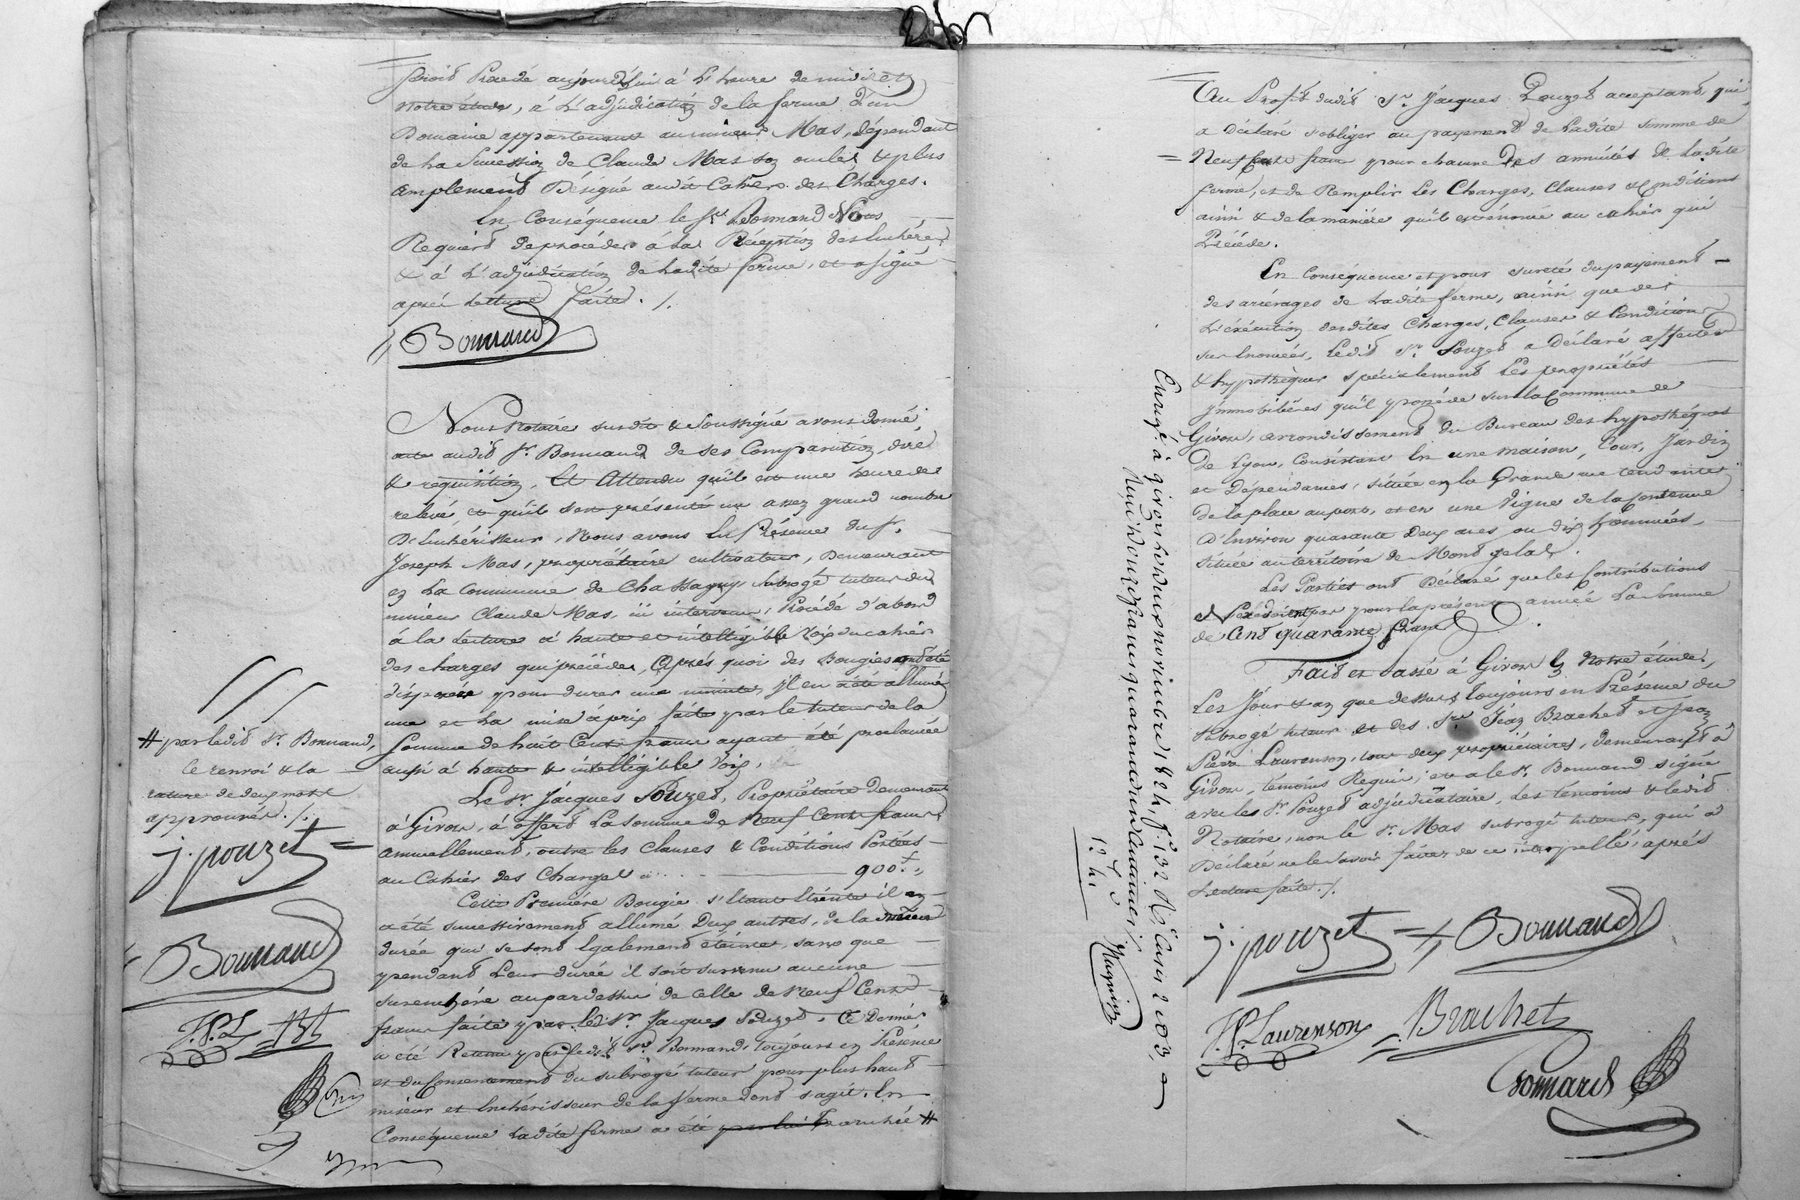 Procédé aujourd'hui à L'heure de midi en
notre étude, à L'adjudication de la ferme d'un
Domaine appartenant au mineur Mas, dépendant
de La Succession de Claude Mas son & plus
amplement Désigné audit Cahier des Charges.
En Conséquence le Sr Bonnand Nous
Requiert de procéder à La Réception des Enchères
& à L'adjudication de Ladite ferme, et a signé
après Lecture faite. /.
Bonnand
Nous Notaire susdit & Soussigné avons donné
acte audit Sr. Bonnand de ses Comparution, dire
& requisition, Et Attendu qu'il est une heure de
relevé, et qu'il s'est présenté un assez grand nombre
D'Enchérisseurs, Nous avons En Présence du Sr.
Joseph Mas, propriétaire cultivateur, Demeurant
en La Commune de Chassagny, subrogé tuteur du
mineur Claude Mas, ici intervenu, Procédé d'abord
à la Lecture à haute et intelligible Voix du cahier
des charges qui précède, Après quoi des Bougies ont été
disposées pour durer une minute, Il en a été allumé
une et La mise à prix faite par le tuteur de la
Somme de huit Cents francs ayant été proclamée
aussi à haute & intelligible Voix,
Le Sr. Jacques Pouzet, Propriétaire demeurant
à Givors, à offert La Somme de Neuf Cents francs
annuellement, outre les Clauses & Conditions Portées
au Cahier des Charges ci . . . . 900 f. "
Cette Première Bougie s'étant éteinte il en
a été successivement allumé Deux autres, de la même
durée qui se sont Egalement éteintes, sans que
pendant Leur durée il soit survenu aucune
surenchère au pardessus de celle de Neuf Cents
francs faite par led. Sr. Jacques Pouzet. Ce Dernier
a été Retenu par ledit Sr Bonnand, toujours en Présence
et du Consentement du subrogé tuteur pour plus haut
miseur et Enchérisseur de la ferme dont s'agit. En
Conséquence Ladite ferme a été #
# par ledit Sr. Bonnand,
Ce renvoi & la
rature de deux mots
approuvés. /.
J. pouzet
Bonnand
J. P. L. Bt
Au Profit dudit Sr. Jacques Pouzet acceptant, qui
a Déclaré s'obliger au payement de Ladite Somme de
Neuf Cents francs pour chacune des années de Ladite
ferme, et de Remplir Les Charges, Clauses & Conditions
ainsi & de la manière qu'il est énoncé au cahier qui
Précède.
En Conséquence et pour sureté du payement
des arrérages de Ladite ferme, ainsi que de
L'exécution desdites Charges, Clauses & Conditions
sus Enoncées, Ledit Sr. Pouzet a Déclaré affecter
& hypothèquer spécialement Les propriétés
Immobilières qu'il possède sur la Commune de
Givors, arrondissement du Bureau des hypothèques
De Lyon, Consistant En une maison, Cour, Jardin
et Dépendances, située en La Grande rue tendante
De la place au port, et en une Vigne de la Contenue
D'Environ quarante Deux ares ou dix hommées,
Située au territoire de Mont Gelas.
Les Parties ont Déclaré que les Contributions
N'excédaient pas pour la présente année La Somme
de Cent quarante francs.
Fait et Passé à Givors En Notre étude,
Les Jour & an que dessus, toujours en Présence du
subrogé tuteur et des Srs Jean Brachet et Jean
Pierre Laurenson, tous deux propriétaires, demeurant à
Givors, témoins Requis; et a le Sr. Bonnand signé
avec les Sr. Pouzet adjudicataire, Les témoins & ledit
Notaire, non le Sr. Mas subrogé tuteur, qui a
Déclaré ne le Savoir faire, de ce interpellé, après
Lecture faite. /.
J. pouzet
Bonnand
J. P. Laurenson
Brachet
Bonnard
Enregé. à givors Le deux novembre 1824, f.° 132 Rc. Cases 2 et 3,
Reçu douze francs quarante deux centimes